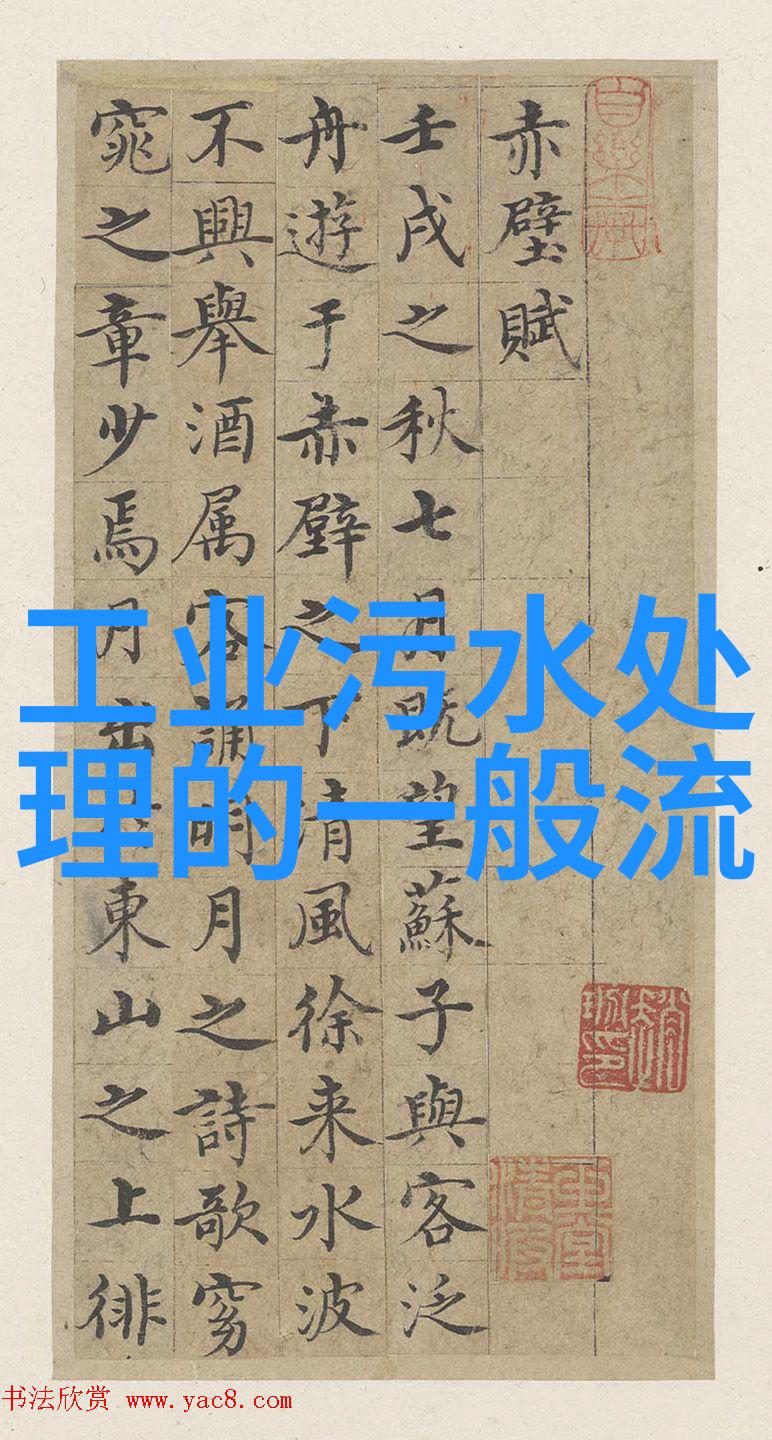 赤壁賦
壬戌之秋七月既望蘇子與客泛
舟遊于赤壁之下清風徐来水波
不興舉酒属客誦明月之詩歌窈
窕之章少焉月出於東山之上徘
工业污水处
理的一般流
书法欣赏 www.yac8.com